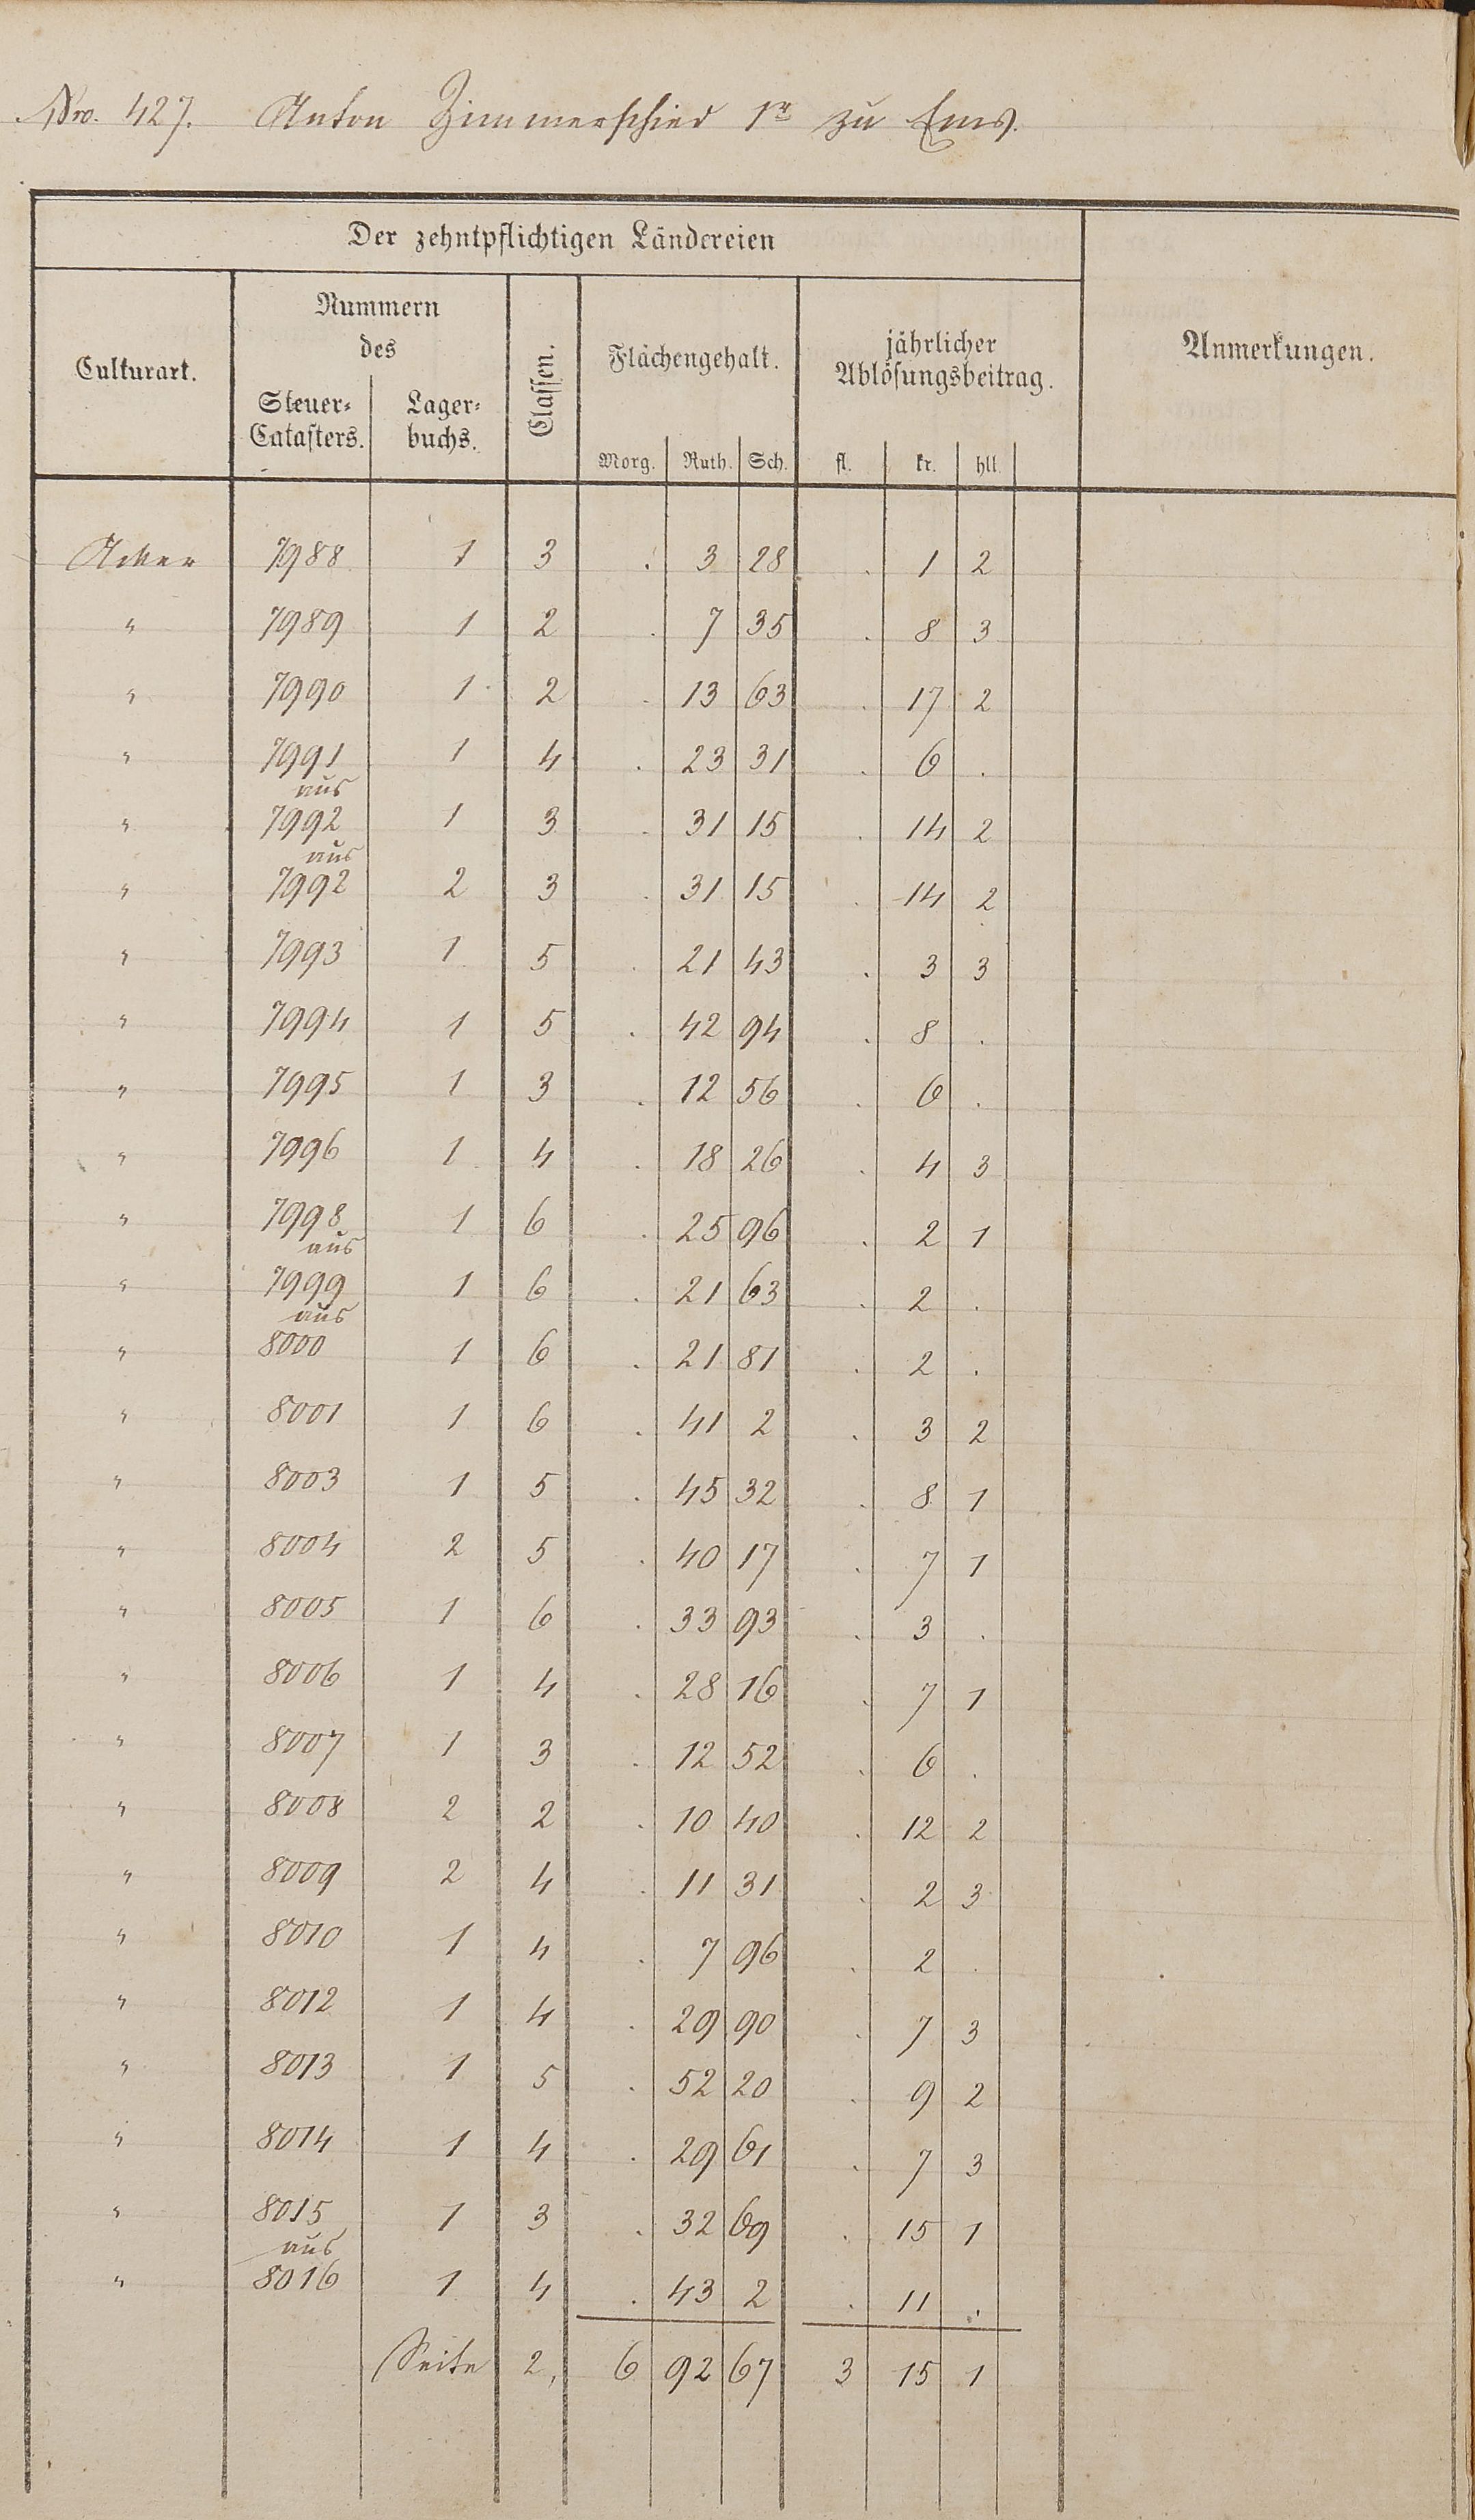 Nro. 427. Anton Zimmerschied 1r zu Ems.
Der zehntpflichtigen Ländereien
Culturart.
Nummern
des
Steuer-
Catasters.
Lager-
buchs.
Classen.
Flächengehalt.
Morg. Ruth. Sch.
jährlicher
Ablösungsbeitrag.
fl. kr. hll.
Anmerkungen.
Acker 7988 1 3 . 3 28 . 1 2
" 7989 1 2 . 7 35 . 8 3
" 7990 1 2 . 13 63 . 17 2
" 7991 1 4 . 23 31 . 6 .
aus
" 7992 1 3 . 31 15 . 14 2
aus
" 7992 2 3 . 31 15 . 14 2
" 7993 1 5 . 21 43 . 3 3
" 7994 1 5 . 42 94 . 8 .
" 7995 1 3 . 12 56 . 6 .
" 7996 1 4 . 18 26 . 4 3
" 7998 1 6 . 25 96 . 2 1
aus
" 7999 1 6 . 21 63 . 2 .
aus
" 8000 1 6 . 21 81 . 2 .
" 8001 1 6 . 41 2 . 3 2
" 8003 1 5 . 45 32 . 8 1
" 8004 2 5 . 40 17 . 7 1
" 8005 1 6 . 33 93 . 3 .
" 8006 1 4 . 28 16 . 7 1
" 8007 1 3 . 12 52 . 6 .
" 8008 2 2 . 10 40 . 12 2
" 8009 2 4 . 11 31 . 2 3
" 8010 1 4 . 7 96 . 2 .
" 8012 1 4 . 29 90 . 7 3
" 8013 1 5 . 52 20 . 9 2
" 8014 1 4 . 29 61 . 7 3
" 8015 1 3 . 32 69 . 15 1
aus
" 8016 1 4 . 43 2 . 11 .
Seite 2, 6 92 67 3 15 1